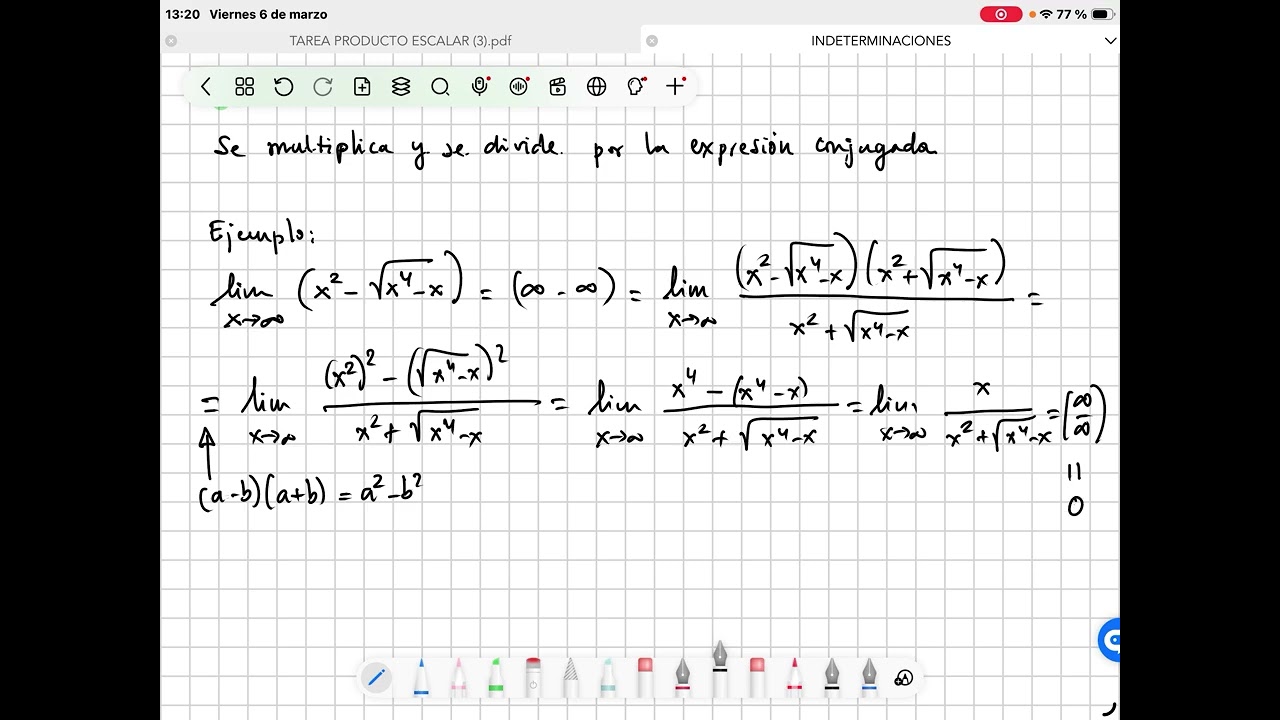 13:20 Viernes 6 de marzo 77 %
TAREA PRODUCTO ESCALAR (3).pdf INDETERMINACIONES
Se multiplica y se divide. por la expresión conjugada
Ejemplo:
lim x→∞ (x² - √(x⁴-x)) = (∞ - ∞) = lim x→∞ (x² - √(x⁴-x))(x² + √(x⁴-x)) / (x² + √(x⁴-x)) =
= lim x→∞ ((x²)² - (√(x⁴-x))²) / (x² + √(x⁴-x)) = lim x→∞ (x⁴ - (x⁴-x)) / (x² + √(x⁴-x)) = lim x→∞ x / (x² + √(x⁴-x)) = (∞/∞)
(a-b)(a+b) = a² - b²
=
0